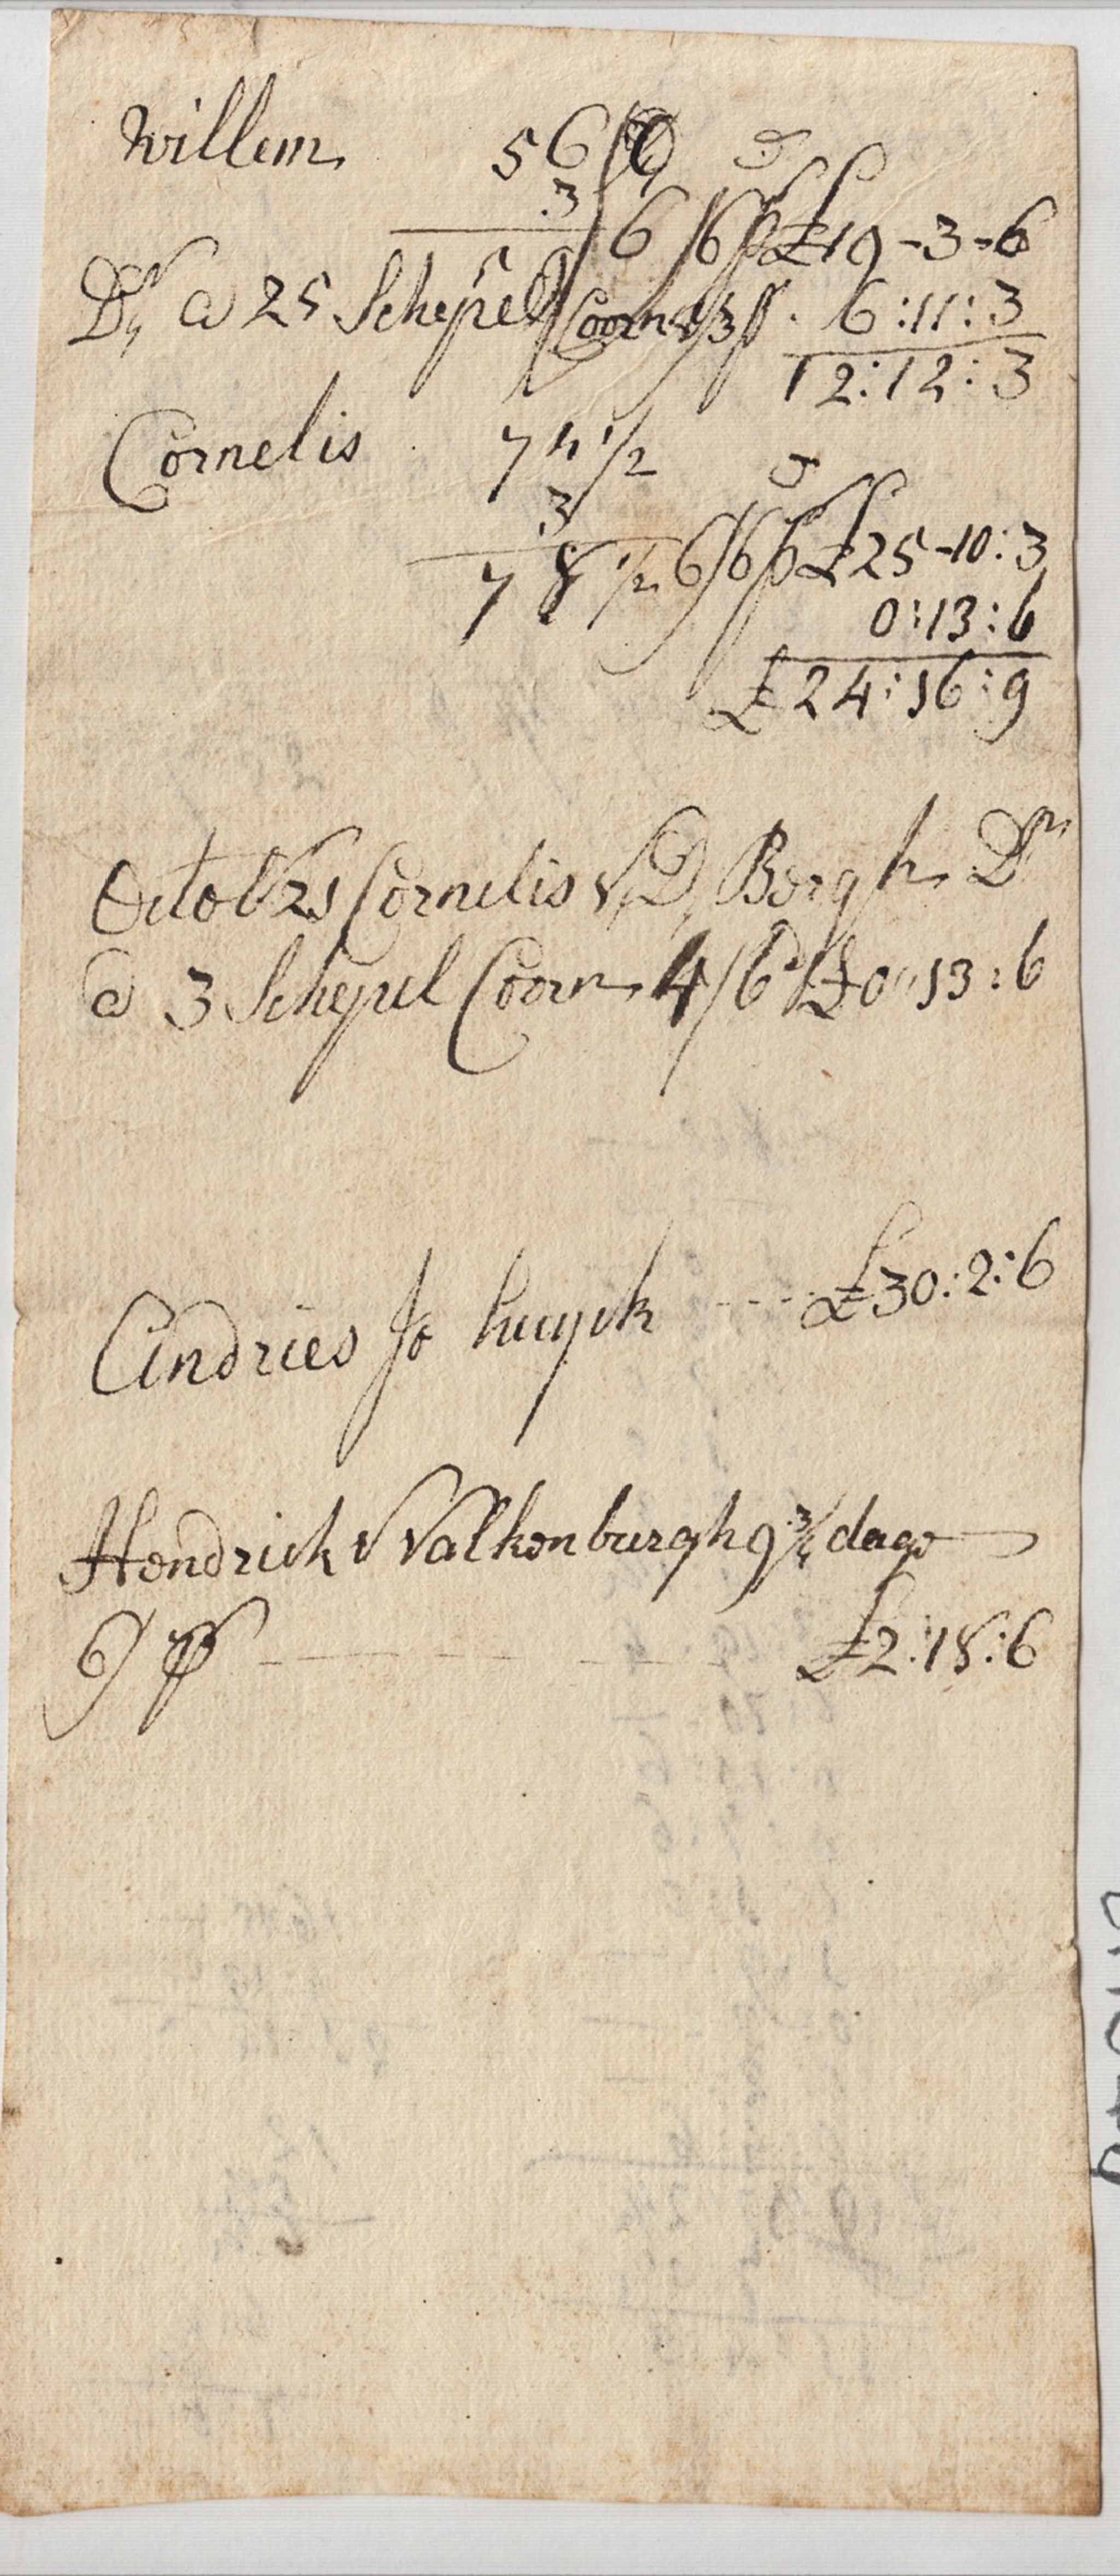 Willem 56
3 6/6 p £19-3-6
Dr a 25 Schepel Coorn 5/3 p. 6:11:3
12:12:3
Cornelis 74 1/2
3
78 1/2 6/6 p £25-10:3
0:13:6
£24:16:9
Octobr 21 Cornelis V, D, Bergh Dr
a 3 Schepel Coorn 4/6 £0"13:6
Andries Jo huyck £30:2:6
Hendrick V Valkenburgh 9 3/4 dage
6/ p £2:18:6